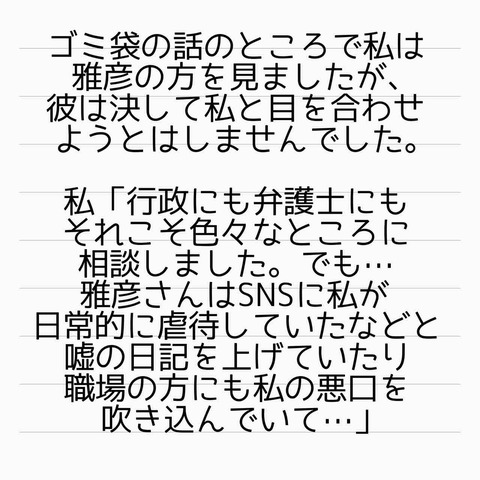 ゴミ袋の話のところで私は
雅彦の方を見ましたが、
彼は決して私と目を合わせ
ようとはしませんでした。
私「行政にも弁護士にも
それこそ色々なところに
相談しました。でも…
雅彦さんはSNSに私が
日常的に虐待していたなどと
嘘の日記を上げていたり
職場の方にも私の悪口を
吹き込んでいて…」